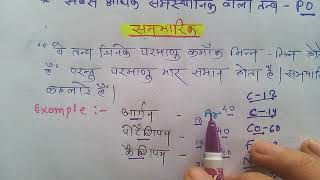 * सबसे अधिक समस्थानिक वाला तत्व - PO
समभारिक
"वे तत्व जिनके परमाणु क्रमांक भिन्न - भिन्न होते
हैं परन्तु परमाणु भार समान होता है। समभारि
कहलाते हैं।
Example :- आर्गन - 18 Ar 40
पोटैशियम - 40
कैल्शियम - 40
C-12
C-14
CO-60